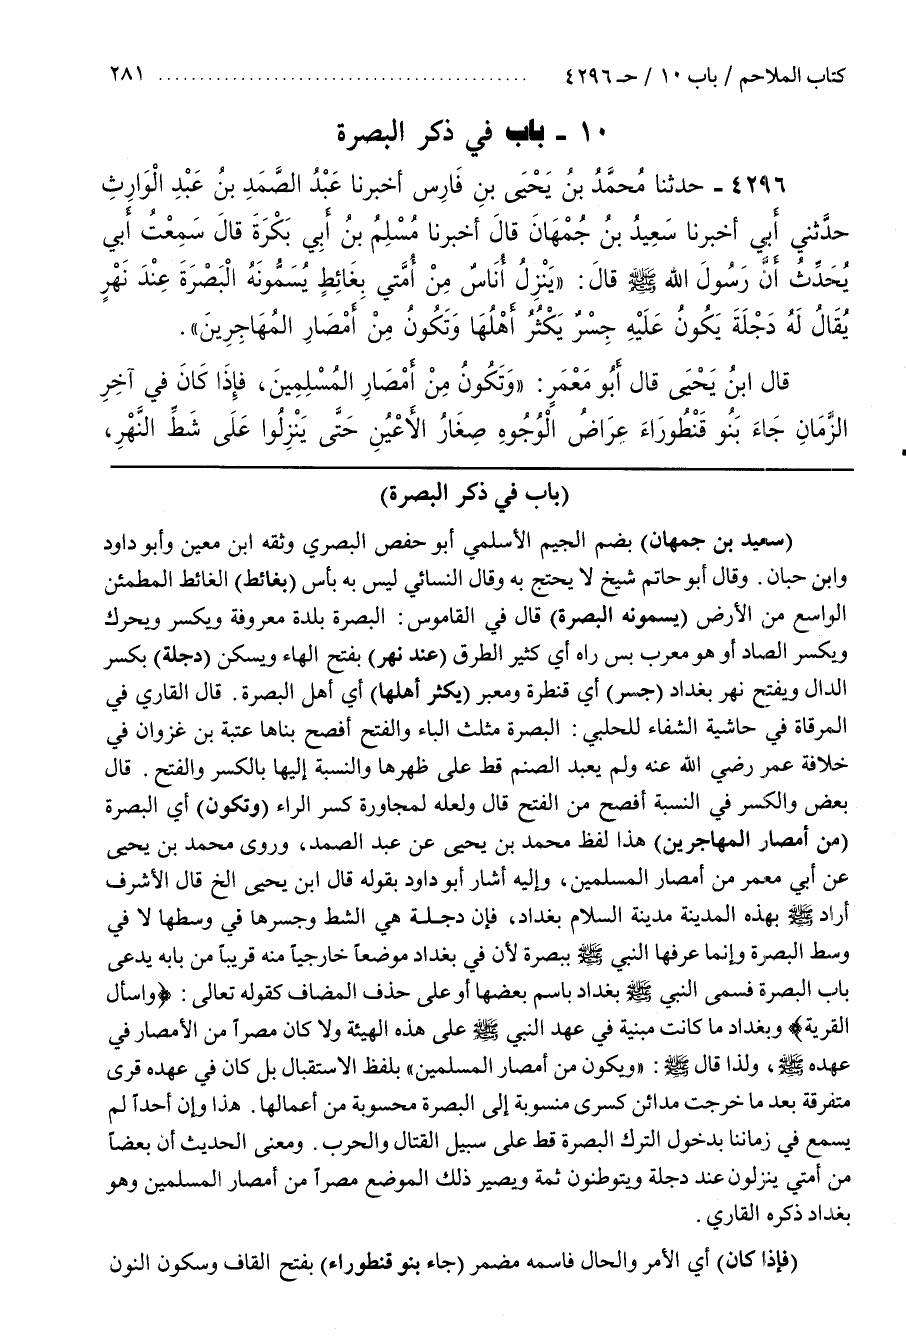 كتاب الملاحم / باب ١٠ / حـ ٤٢٩٦ ........................................... ٢٨١
١٠ - باب في ذكر البصرة
٤٢٩٦ - حدثنا مُحمَّدُ بنُ يَحْيَى بنِ فَارِسٍ أخبرنا عَبْدُ الصَّمَدِ بنُ عَبْدِ الْوَارِثِ
حدَّثني أَبي أخبرنا سَعِيدُ بنُ جُمْهَانَ قالَ أخبرنا مُسْلِمُ بنُ أَبِي بَكْرَةَ قالَ سَمِعْتُ أَبي
يُحَدِّثُ أَنَّ رَسُولَ الله ﷺ قالَ: «يَنْزِلُ أُنَاسٌ مِنْ أُمَّتي بِغَائِطٍ يُسَمُّونَهُ الْبَصْرَةَ عِنْدَ نَهْرٍ
يُقَالُ لَهُ دَجْلَةَ يَكُونُ عَلَيْهِ جِسْرٌ يَكْثُرُ أَهْلُهَا وَتَكُونُ مِنْ أَمْصَارِ المُهَاجِرِينَ».
قال ابنُ يَحْيَى قال أَبُو مَعْمَرٍ: «وَتَكُونُ مِنْ أَمْصَارِ المُسْلِمِينَ، فإِذَا كَانَ في آخِرِ
الزَّمَانِ جَاءَ بَنُو قَنْطُورَاءَ عِرَاضُ الْوُجُوهِ صِغَارُ الأَعْيُنِ حَتَّى يَنْزِلُوا عَلَى شَطِّ النَّهْرِ،
(باب في ذكر البصرة)
(سعيد بن جمهان) بضم الجيم الأسلمي أبو حفص البصري وثقه ابن معين وأبو داود
وابن حبان. وقال أبو حاتم شيخ لا يحتج به وقال النسائي ليس به بأس (بغائط) الغائط المطمئن
الواسع من الأرض (يسمونه البصرة) قال في القاموس: البصرة بلدة معروفة ويكسر ويحرك
ويكسر الصاد أو هو معرب بس راه أي كثير الطرق (عند نهر) بفتح الهاء ويسكن (دجلة) بكسر
الدال ويفتح نهر بغداد (جسر) أي قنطرة ومعبر (يكثر أهلها) أي أهل البصرة. قال القاري في
المرقاة في حاشية الشفاء للحلبي: البصرة مثلث الباء والفتح أفصح بناها عتبة بن غزوان في
خلافة عمر رضي الله عنه ولم يعبد الصنم قط على ظهرها والنسبة إليها بالكسر والفتح. قال
بعض والكسر في النسبة أفصح من الفتح قال ولعله لمجاورة كسر الراء (وتكون) أي البصرة
(من أمصار المهاجرين) هذا لفظ محمد بن يحيى عن عبد الصمد، وروى محمد بن يحيى
عن أبي معمر من أمصار المسلمين، وإليه أشار أبو داود بقوله قال ابن يحيى الخ قال الأشرف
أراد ﷺ بهذه المدينة مدينة السلام بغداد، فإن دجلة هي الشط وجسرها في وسطها لا في
وسط البصرة وإنما عرفها النبي ﷺ ببصرة لأن في بغداد موضعاً خارجياً منه قريباً من بابه يدعى
باب البصرة فسمى النبي ﷺ بغداد باسم بعضها أو على حذف المضاف كقوله تعالى: ﴿واسأل
القرية﴾ وبغداد ما كانت مبنية في عهد النبي ﷺ على هذه الهيئة ولا كان مصراً من الأمصار في
عهده ﷺ، ولذا قال ﷺ: «ويكون من أمصار المسلمين» بلفظ الاستقبال بل كان في عهده قرى
متفرقة بعد ما خرجت مدائن كسرى منسوبة إلى البصرة محسوبة من أعمالها. هذا وإن أحداً لم
يسمع في زماننا بدخول الترك البصرة قط على سبيل القتال والحرب. ومعنى الحديث أن بعضاً
من أمتي ينزلون عند دجلة ويتوطنون ثمة ويصير ذلك الموضع مصراً من أمصار المسلمين وهو
بغداد ذكره القاري.
(فإذا كان) أي الأمر والحال فاسمه مضمر (جاء بنو قنطوراء) بفتح القاف وسكون النون